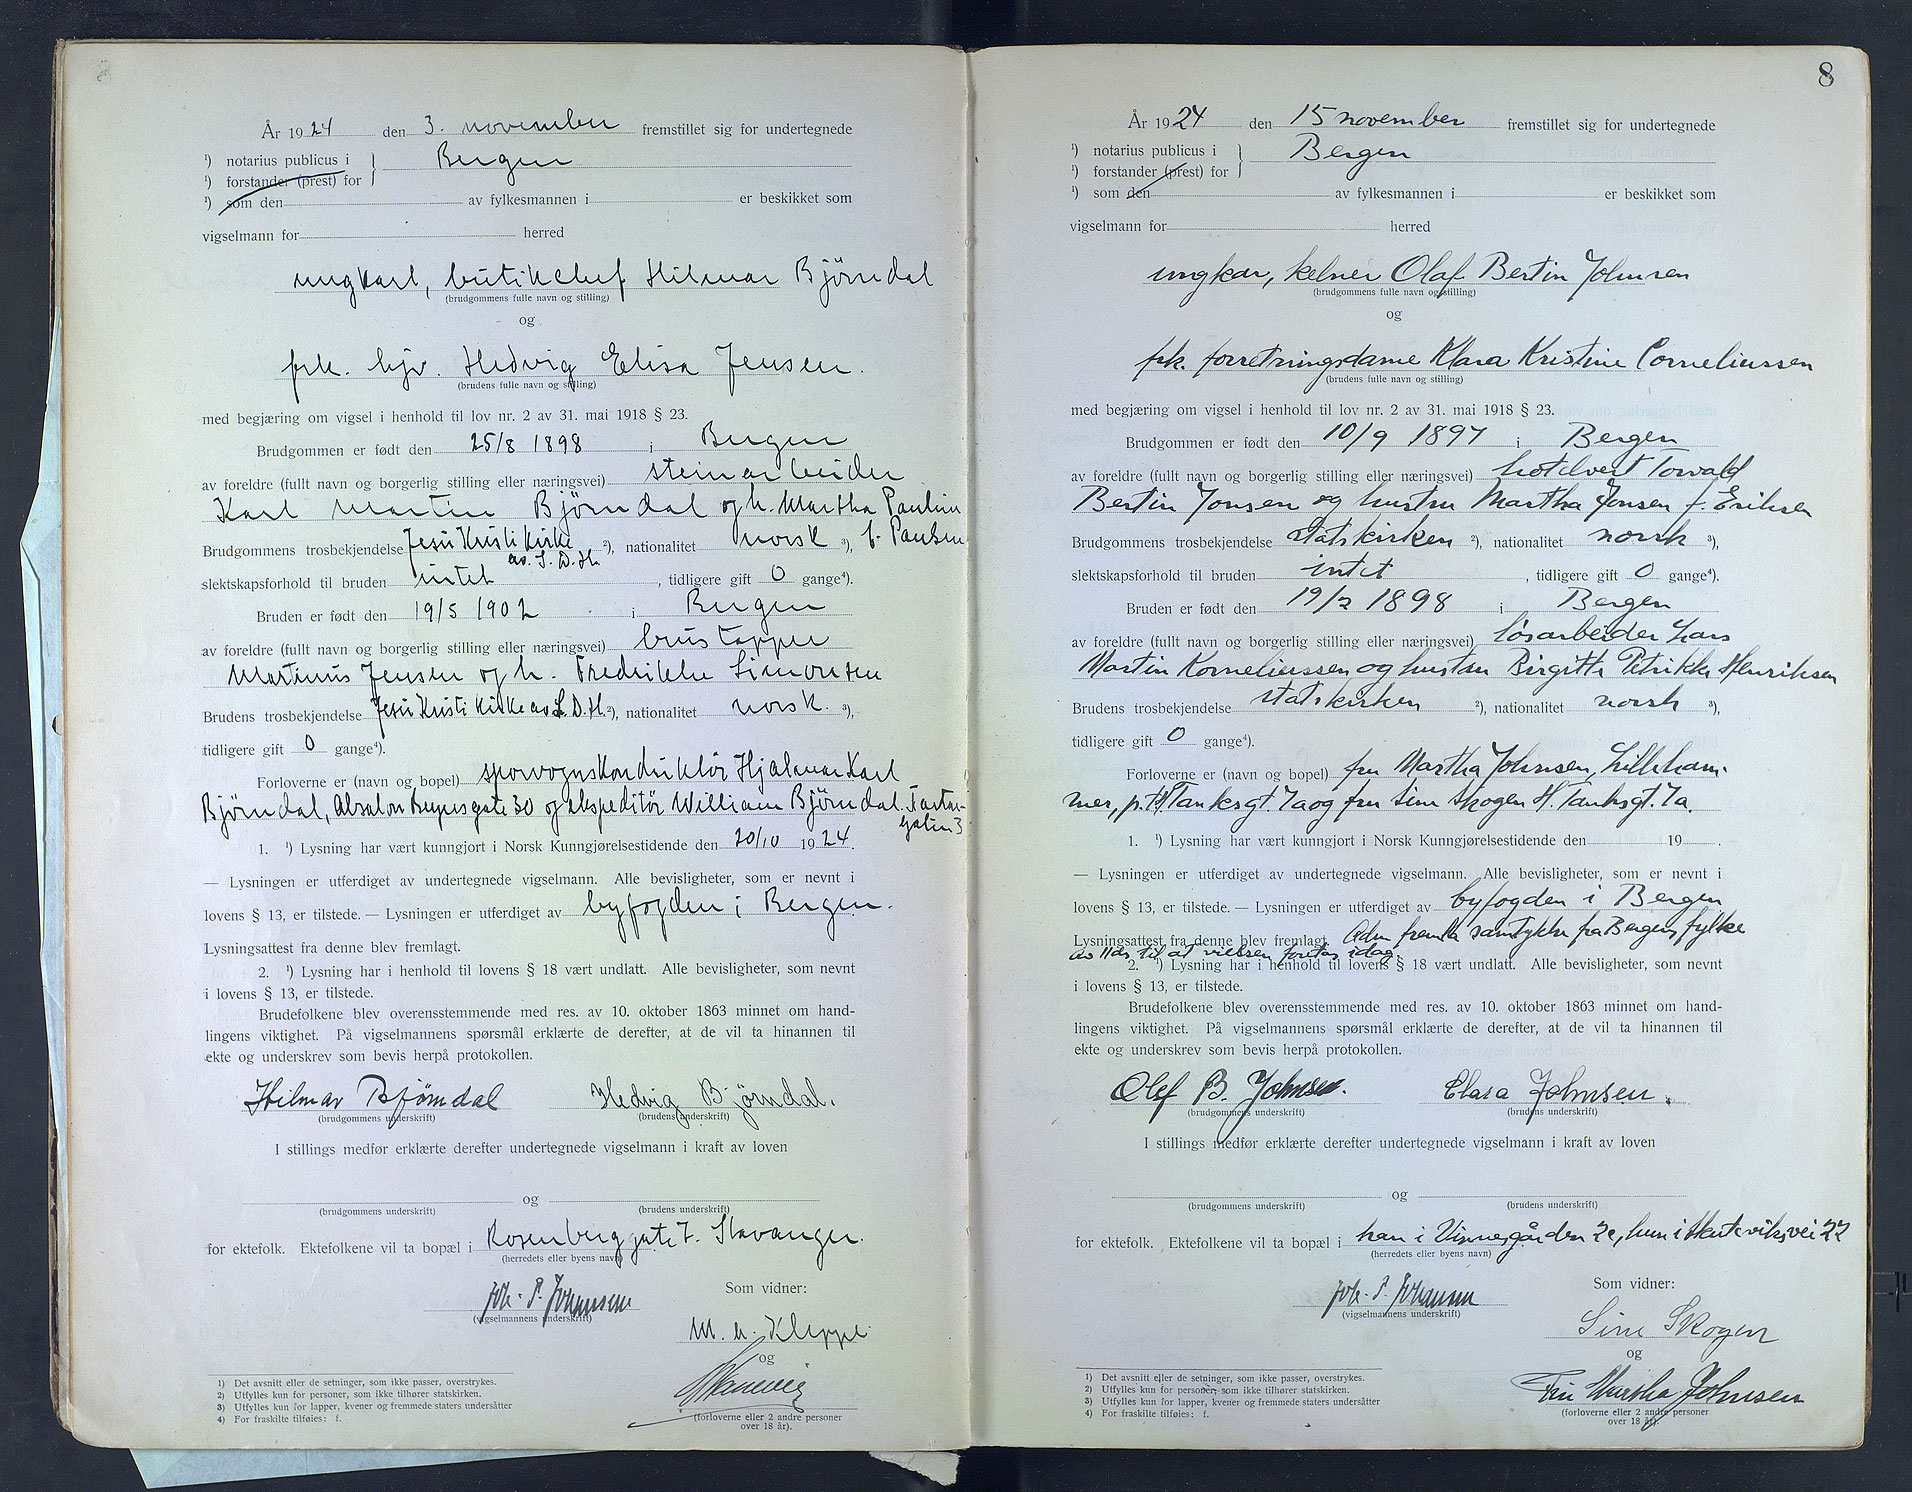 8
År 1924 den 3. november fremstillet sig for undertegnede
¹) notarius publicus i
Bergen
¹) forstander (prest) for
¹) som den av fylkesmannen i er beskikket som
vigselmann for herred
ungkarl, butikchef Hilmar Bjørndal
(brudgommens fulle navn og stilling)
og
frk. hjv. Hedvig Elisa Jensen.
(brudens fulle navn og stilling)
med begjæring om vigsel i henhold til lov nr. 2 av 31. mai 1918 § 23.
Brudgommen er født den 25/8 1898 i Bergen
av foreldre (fullt navn og borgerlig stilling eller næringsvei) steinarbeider
Karl Martin Bjørndal og h. Martha Pauline
Brudgommens trosbekjendelse Jesu Kristi Kirke ²), nationalitet norsk ³), f. Paulsen
av S. D. H.
slektskapsforhold til bruden intet, tidligere gift 0 gange⁴).
Bruden er født den 19/5 1902 i Bergen
av foreldre (fullt navn og borgerlig stilling eller næringsvei) brustapper
Martinus Jensen og h. Fredrikke Simonsen
Brudens trosbekjendelse Jesu Kristi Kirke av S. D. H. ²), nationalitet norsk. ³),
tidligere gift 0 gange⁴).
Forloverne er (navn og bopel) sporvognskonduktør Hjalmar Karl
Bjørndal, Absalon Beyersgate 30 og ekspeditør William Bjørndal.
gaten 3
1. ¹) Lysning har vært kunngjort i Norsk Kunngjørelsestidende den 20/10 1924.
— Lysningen er utferdiget av undertegnede vigselmann. Alle bevisligheter, som er nevnt i
lovens § 13, er tilstede. — Lysningen er utferdiget av byfogden i Bergen.
Lysningsattest fra denne blev fremlagt.
2. ¹) Lysning har i henhold til lovens § 18 vært undlatt. Alle bevisligheter, som nevnt
i lovens § 13, er tilstede.
Brudefolkene blev overensstemmende med res. av 10. oktober 1863 minnet om hand-
lingens viktighet. På vigselmannens spørsmål erklærte de derefter, at de vil ta hinannen til
ekte og underskrev som bevis herpå protokollen.
Hilmar Bjørndal Hedvig Bjørndal.
(brudgommens underskrift) (brudens underskrift)
I stillings medfør erklærte derefter undertegnede vigselmann i kraft av loven
og
(brudgommens underskrift) (brudens underskrift)
for ektefolk. Ektefolkene vil ta bopæl i Rosenberggate 7. Stavanger.
(herredets eller byens navn)
Som vidner:
Joh. P. Johansen
(vigselmannens underskrift)
M. Kleppe
og
(forloverne eller 2 andre personer
over 18 år).
1) Det avsnitt eller de setninger, som ikke passer, overstrykes.
2) Utfylles kun for personer, som ikke tilhører statskirken.
3) Utfylles kun for lapper, kvener og fremmede staters undersåtter
4) For fraskilte tilføies: f.
8
År 1924 den 15 november fremstillet sig for undertegnede
¹) notarius publicus i
Bergen
¹) forstander (prest) for
¹) som den av fylkesmannen i er beskikket som
vigselmann for herred
ungkar, kelner Olaf Bertin Johnsen
(brudgommens fulle navn og stilling)
og
frk. forretningsdame Klara Kristine Corneliussen
(brudens fulle navn og stilling)
med begjæring om vigsel i henhold til lov nr. 2 av 31. mai 1918 § 23.
Brudgommen er født den 10/9 1897 i Bergen
av foreldre (fullt navn og borgerlig stilling eller næringsvei) hotelvert Torvald
Bertin Jonsen og hustru Martha Jonsen f. Eriksen
Brudgommens trosbekjendelse statskirken ²), nationalitet norsk ³),
slektskapsforhold til bruden intet, tidligere gift 0 gange⁴).
Bruden er født den 19/2 1898 i Bergen
av foreldre (fullt navn og borgerlig stilling eller næringsvei) løsarbeider Lars
Martin Korneliussen og hustru Birgitte Petrikke Henriksen
Brudens trosbekjendelse statskirken ²), nationalitet norsk ³),
tidligere gift 0 gange⁴).
Forloverne er (navn og bopel) fru Martha Johnsen, Lilleham-
mer, p.t. H. Tanksgt. 7a og fru Sine Skogen H. Tanksgt. 7a.
1. ¹) Lysning har vært kunngjort i Norsk Kunngjørelsestidende den 19 .
— Lysningen er utferdiget av undertegnede vigselmann. Alle bevisligheter, som er nevnt i
lovens § 13, er tilstede. — Lysningen er utferdiget av byfogden i Bergen
Lysningsattest fra denne blev fremlagt. samtykke fra Bergens fylke
av til at vielsen foretas idag.
2. ¹) Lysning har i henhold til lovens § 18 vært undlatt. Alle bevisligheter, som nevnt
i lovens § 13, er tilstede.
Brudefolkene blev overensstemmende med res. av 10. oktober 1863 minnet om hand-
lingens viktighet. På vigselmannens spørsmål erklærte de derefter, at de vil ta hinannen til
ekte og underskrev som bevis herpå protokollen.
Olaf B. Johnsen. Clara Johnsen.
(brudgommens underskrift) (brudens underskrift)
I stillings medfør erklærte derefter undertegnede vigselmann i kraft av loven
og
(brudgommens underskrift) (brudens underskrift)
for ektefolk. Ektefolkene vil ta bopæl i han i Vinnesgården 2c, hun i Skuteviksvei 22
(herredets eller byens navn)
Som vidner:
Joh. P. Johansen
(vigselmannens underskrift)
Sine Skogen
og
Fru Martha Johnsen
(forloverne eller 2 andre personer
over 18 år).
1) Det avsnitt eller de setninger, som ikke passer, overstrykes.
2) Utfylles kun for personer, som ikke tilhører statskirken.
3) Utfylles kun for lapper, kvener og fremmede staters undersåtter
4) For fraskilte tilføies: f.